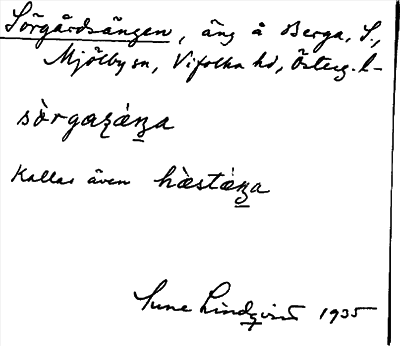 Sörgårdsängen, äng å Berga, S.,
Mjölby sn, Vifolka hd, Österg. l-
sòrgaʐáŋa
Kallas även hàstáŋa
Sune Lindqvist 1935